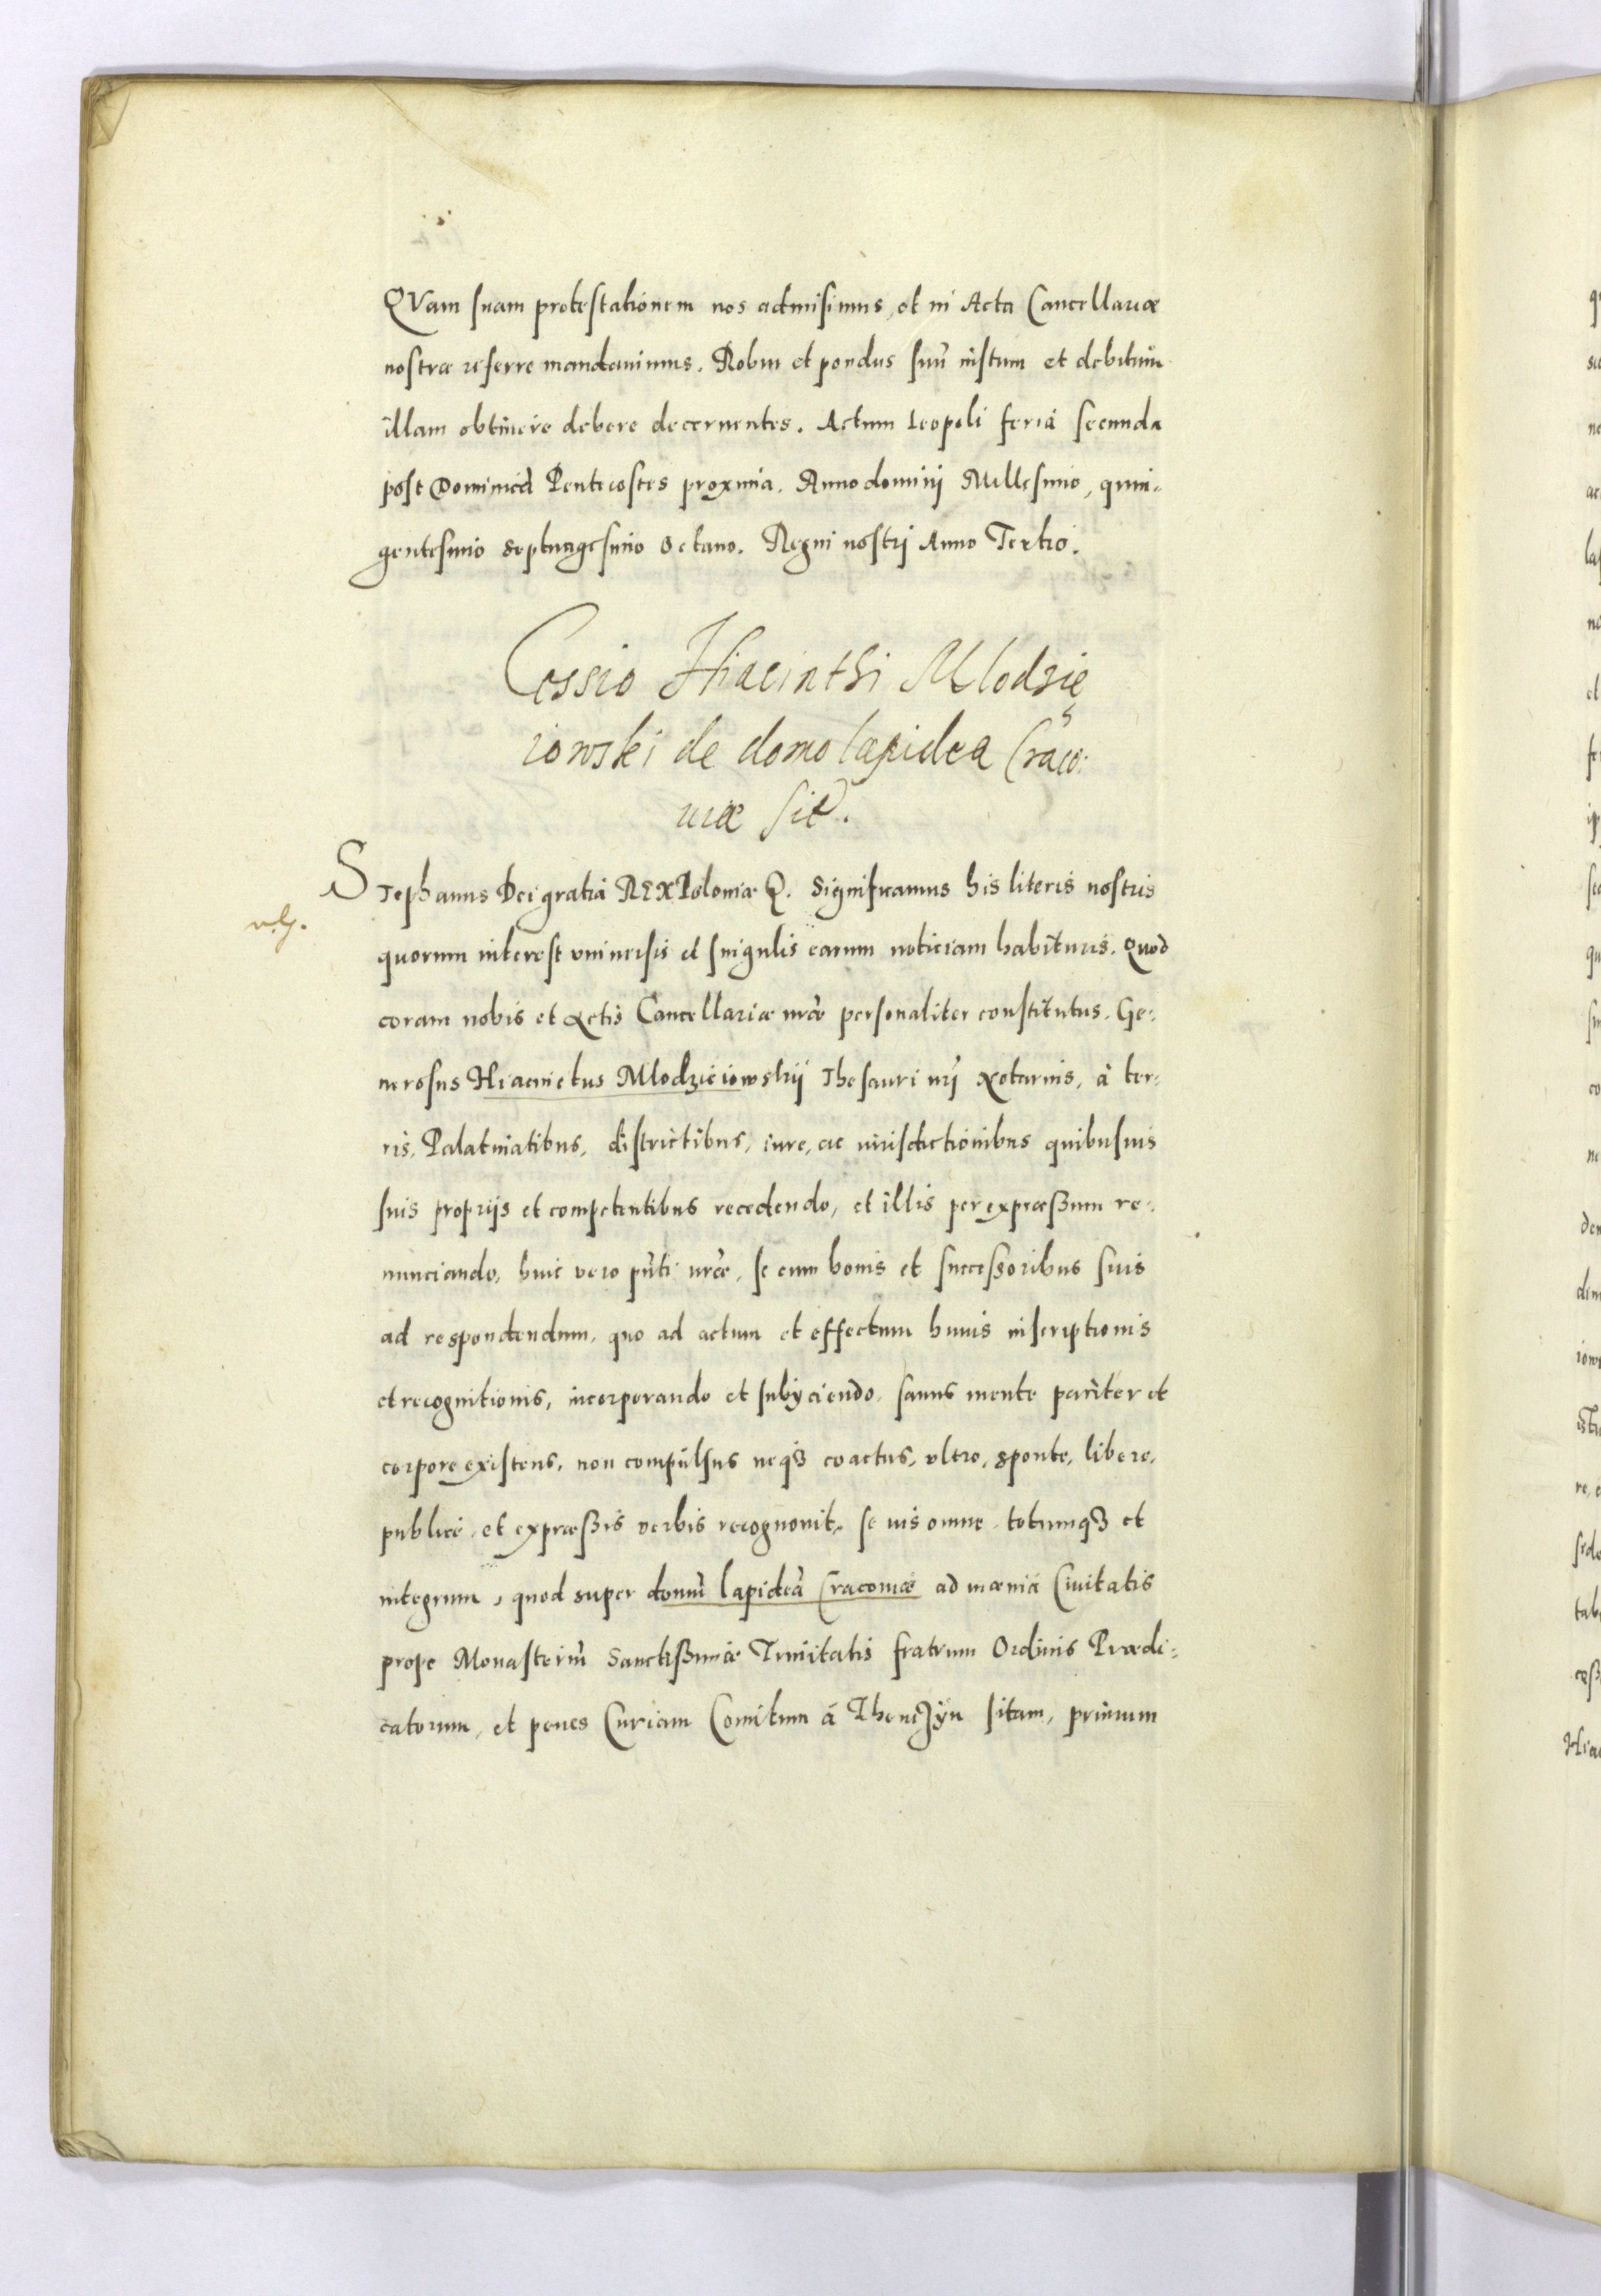 QVam suam protestationem nos admisimus, et in Acta Cancellariæ
nostræ referre mandauimus. Robur et pondus suũ iustum et debitum
illam obtinere debere decernentes. Actum Leopoli feria secunda
post Dominicã Pentecostes proxima. Anno dominij Millesimo, quin-
gentesimo septuagesimo octauo. Regni nostrj Anno Tertio.
Cessio Hiacinthi Mlodzie
iowski de domo lapidea Craco:
uiæ sit.
Stephanus Dei gratia REX Poloniæ &. Significamus his literis nostris
quorum interest vniuersis et singulis earum noticiam habituris. Quod
coram nobis et Actis Cancellariæ nr̃æ personaliter constitutus. Ge-
nerosus Hiacinctus Mlodzieiowskij Thesauri nrĩ Notarius, à ter-
ris, Palatinatibus, districtibus, iure, ac iurisdictionibus quibusuis
suis proprijs et competentibus recedendo, et illis per expræßum re-
nunciando, huic vero pñti nr̃æ, se cum bonis et succeßoribus suis
ad respondendum, quo ad actum et effectum huius inscriptionis
et recognitionis, incorporando et subijciendo, sanus mente pariter et
corpore existens, non compulsus neqȝ coactus, vltro, sponte, libere,
publice, et expræßis verbis recognouit, se ius omne, totumqȝ et
integrum, quod super domũ lapideã Cracouiæ ad mænia Ciuitatis
prope Monasteriũ Sanctißimæ Trinitatis fratrum Ordinis Prædi-
catorum, et penes Curiam Comitum à Thenczÿn sitam, primum